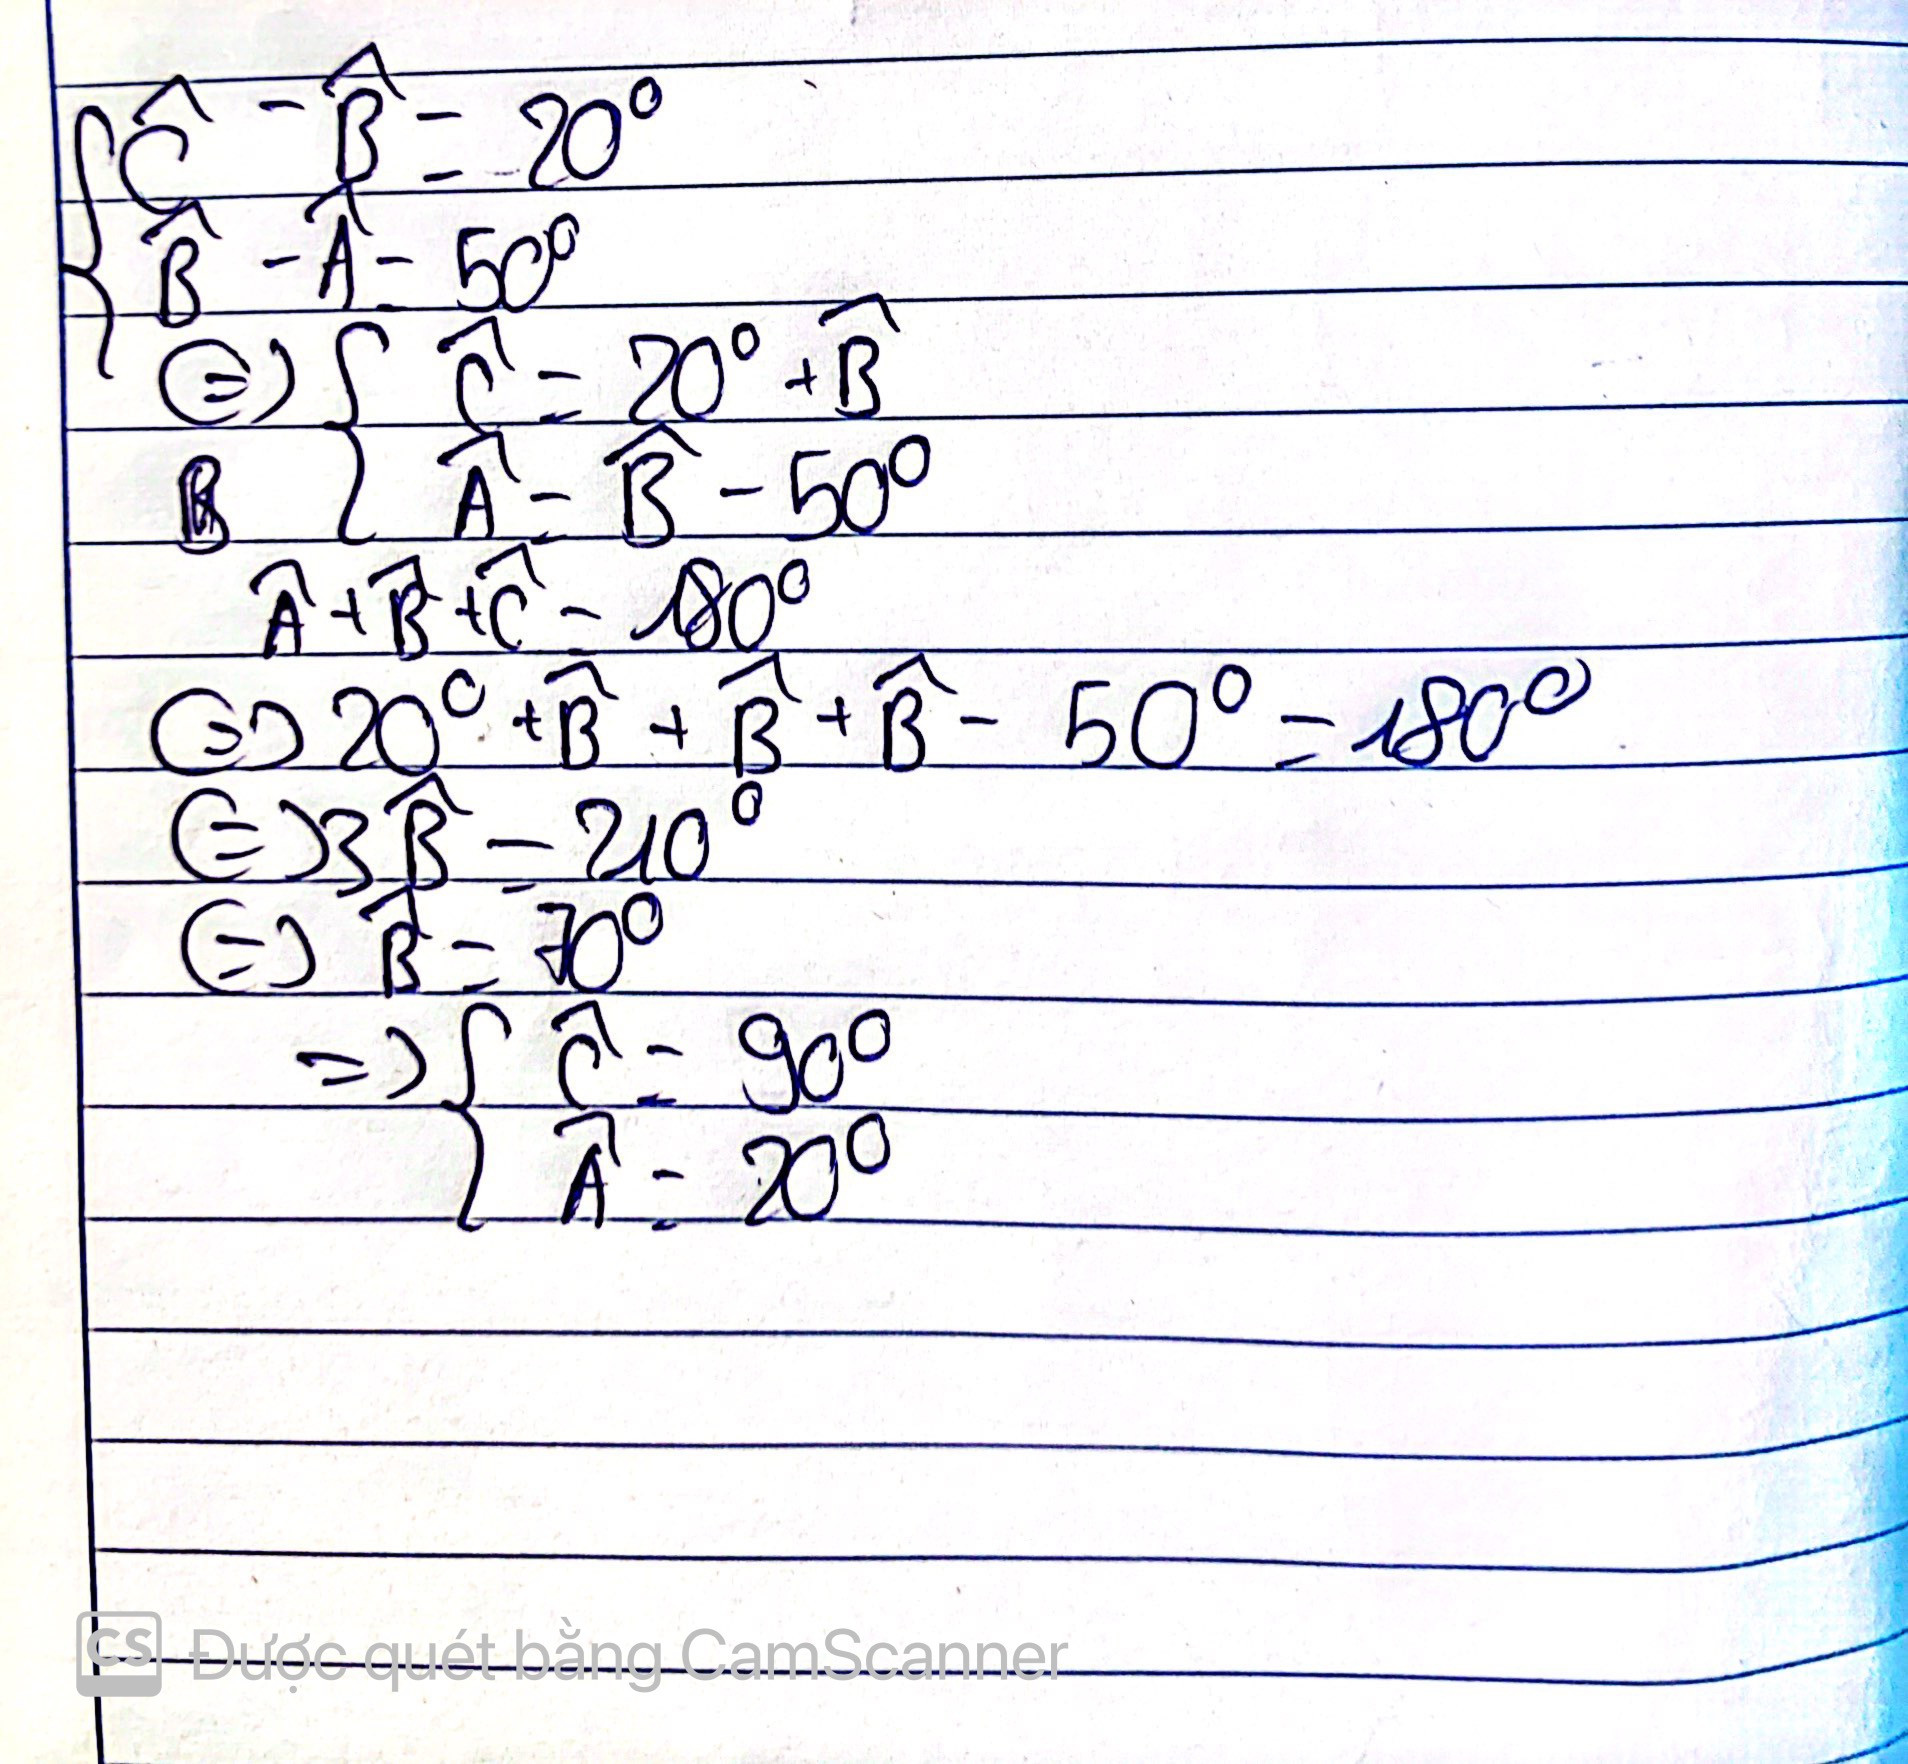 { Ĉ - B̂ = 20°
B̂ - Â = 50°
⇔ { Ĉ = 20° + B̂
Â = B̂ - 50°
Â + B̂ + Ĉ = 180°
⇔ 20° + B̂ + B̂ + B̂ - 50° = 180°
⇔ 3B̂ = 210°
⇔ B̂ = 70°
⇒ { Ĉ = 90°
Â = 20°
CS Được quét bằng CamScanner